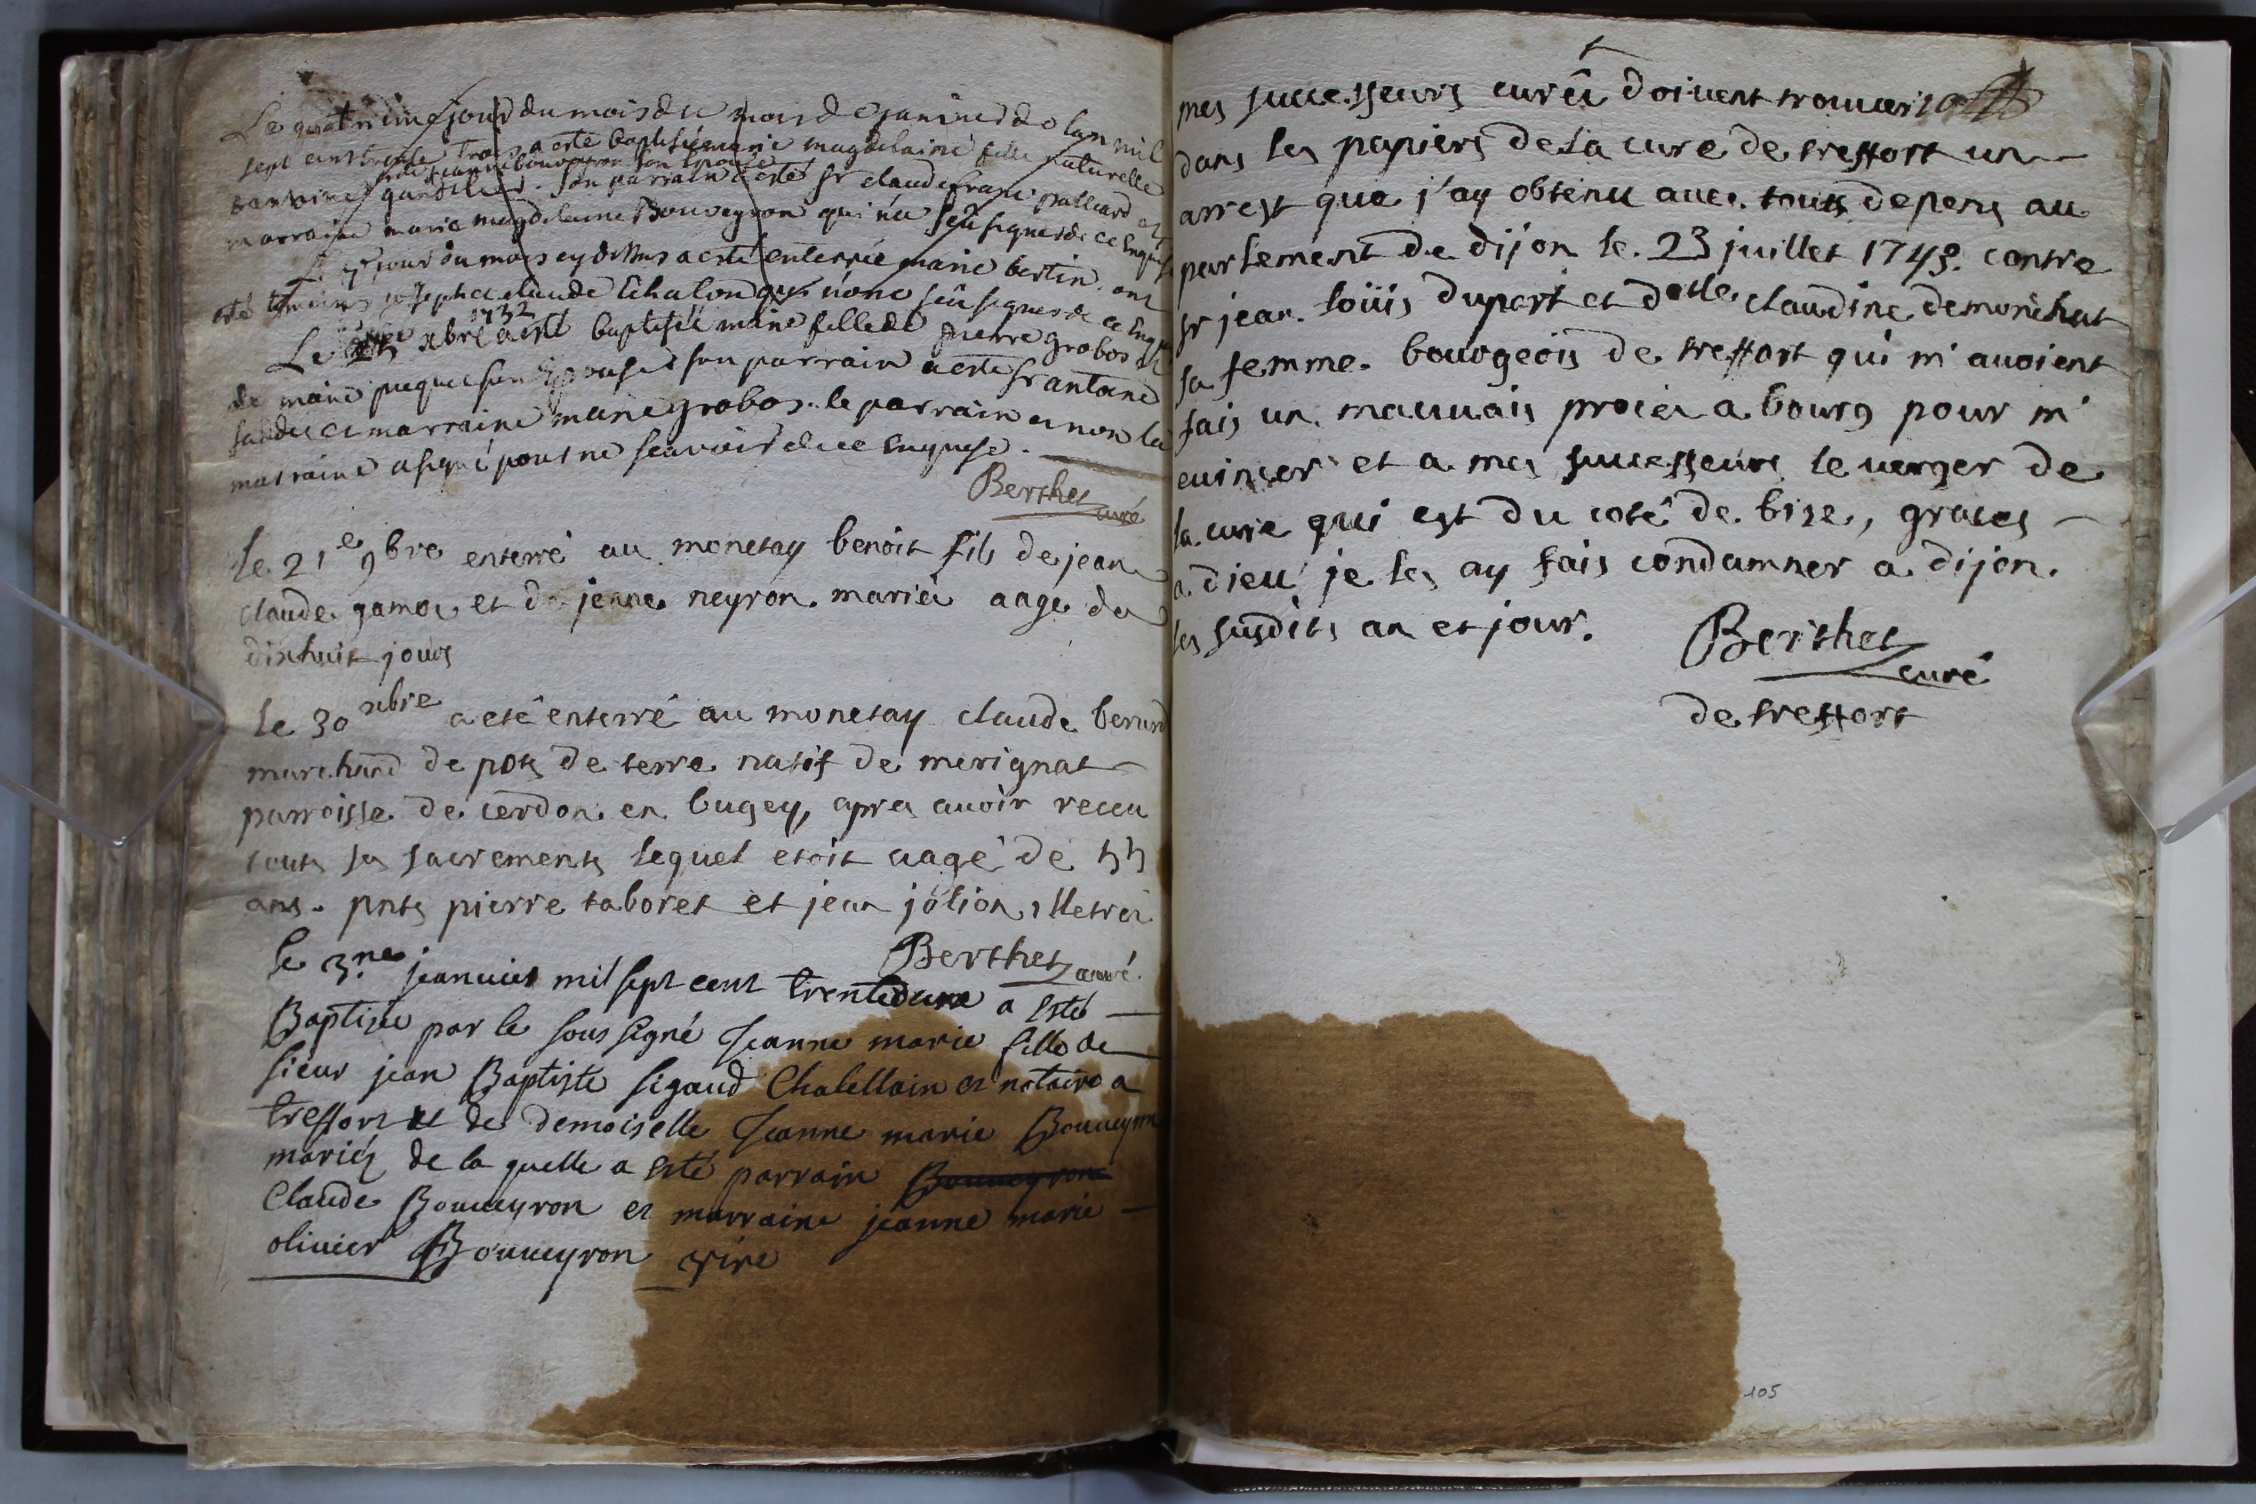 Le quatrieme jour du mois de mois de janvier de lan mil
sept cens trente trois a esté baptisée marie magdelaine fille naturelle
et de jeanne bouveyron son epouse
son parrain a esté sr claude franc palliard et
marraine marie magdelaine Bouveyron qui n'a sceu signer de ce enquise
Le jour du mois cy dessus a esté enterrée marie bertin ont
esté temoins joseph et claude Chalon qui n'ont sceu signer de ce enquis
1732
Le xbre a esté baptisée marie fille de pierre grobos et
de marie puquet son epouse son parrain a esté sr antoine
et marraine marie grobos. le parrain et non la
marraine a signé pour ne scavoir de ce enquise.
Berthet curé
le 21e 9bre enterré au monetay benoit fils de jean
claude gamou et de jenne neyron mariéz aagé de
dixhuit jours
le 30 xbre a eté enterré au monetay claude berard
marchand de pots de terre natif de merignat
parroisse de cerdon en bugey, apres avoir receu
touts ses sacrements lequel etoit aagé de 55
ans. pnts pierre taboret et jean jolion, illetréz
Berthet curé.
le 3me jeanvier mil sept cent trentedeux a esté
Baptisée par le sous signé Jeanne marie fille de
sieur jean Baptiste sigaud Chatellain et notaire a
treffort et de demoiselle Jeanne marie Bouveyron
mariéz de la quelle a esté parrain Bouveyron
Claude Bouveyron et marraine jeanne marie
olivier Bouveyron vire
mes successeurs curés doivent trouver
dans les papiers de la cure de treffort un
arrest que j'ay obtenu avec touts depens au
parlement de dijon le 23 juillet 1748. contre
sr jean loüis dupart et dlle claudine demorêhat
sa femme bourgeois de treffort qui m'avoient
fais un mauvais procéz a bourg pour m'
evincer et a mes successeurs le verger de
la cure qui est du coté de bize, graces
a dieu je les ay fais condamner a dijon.
les susdits an et jour.
Berthet
curé
de treffort
105